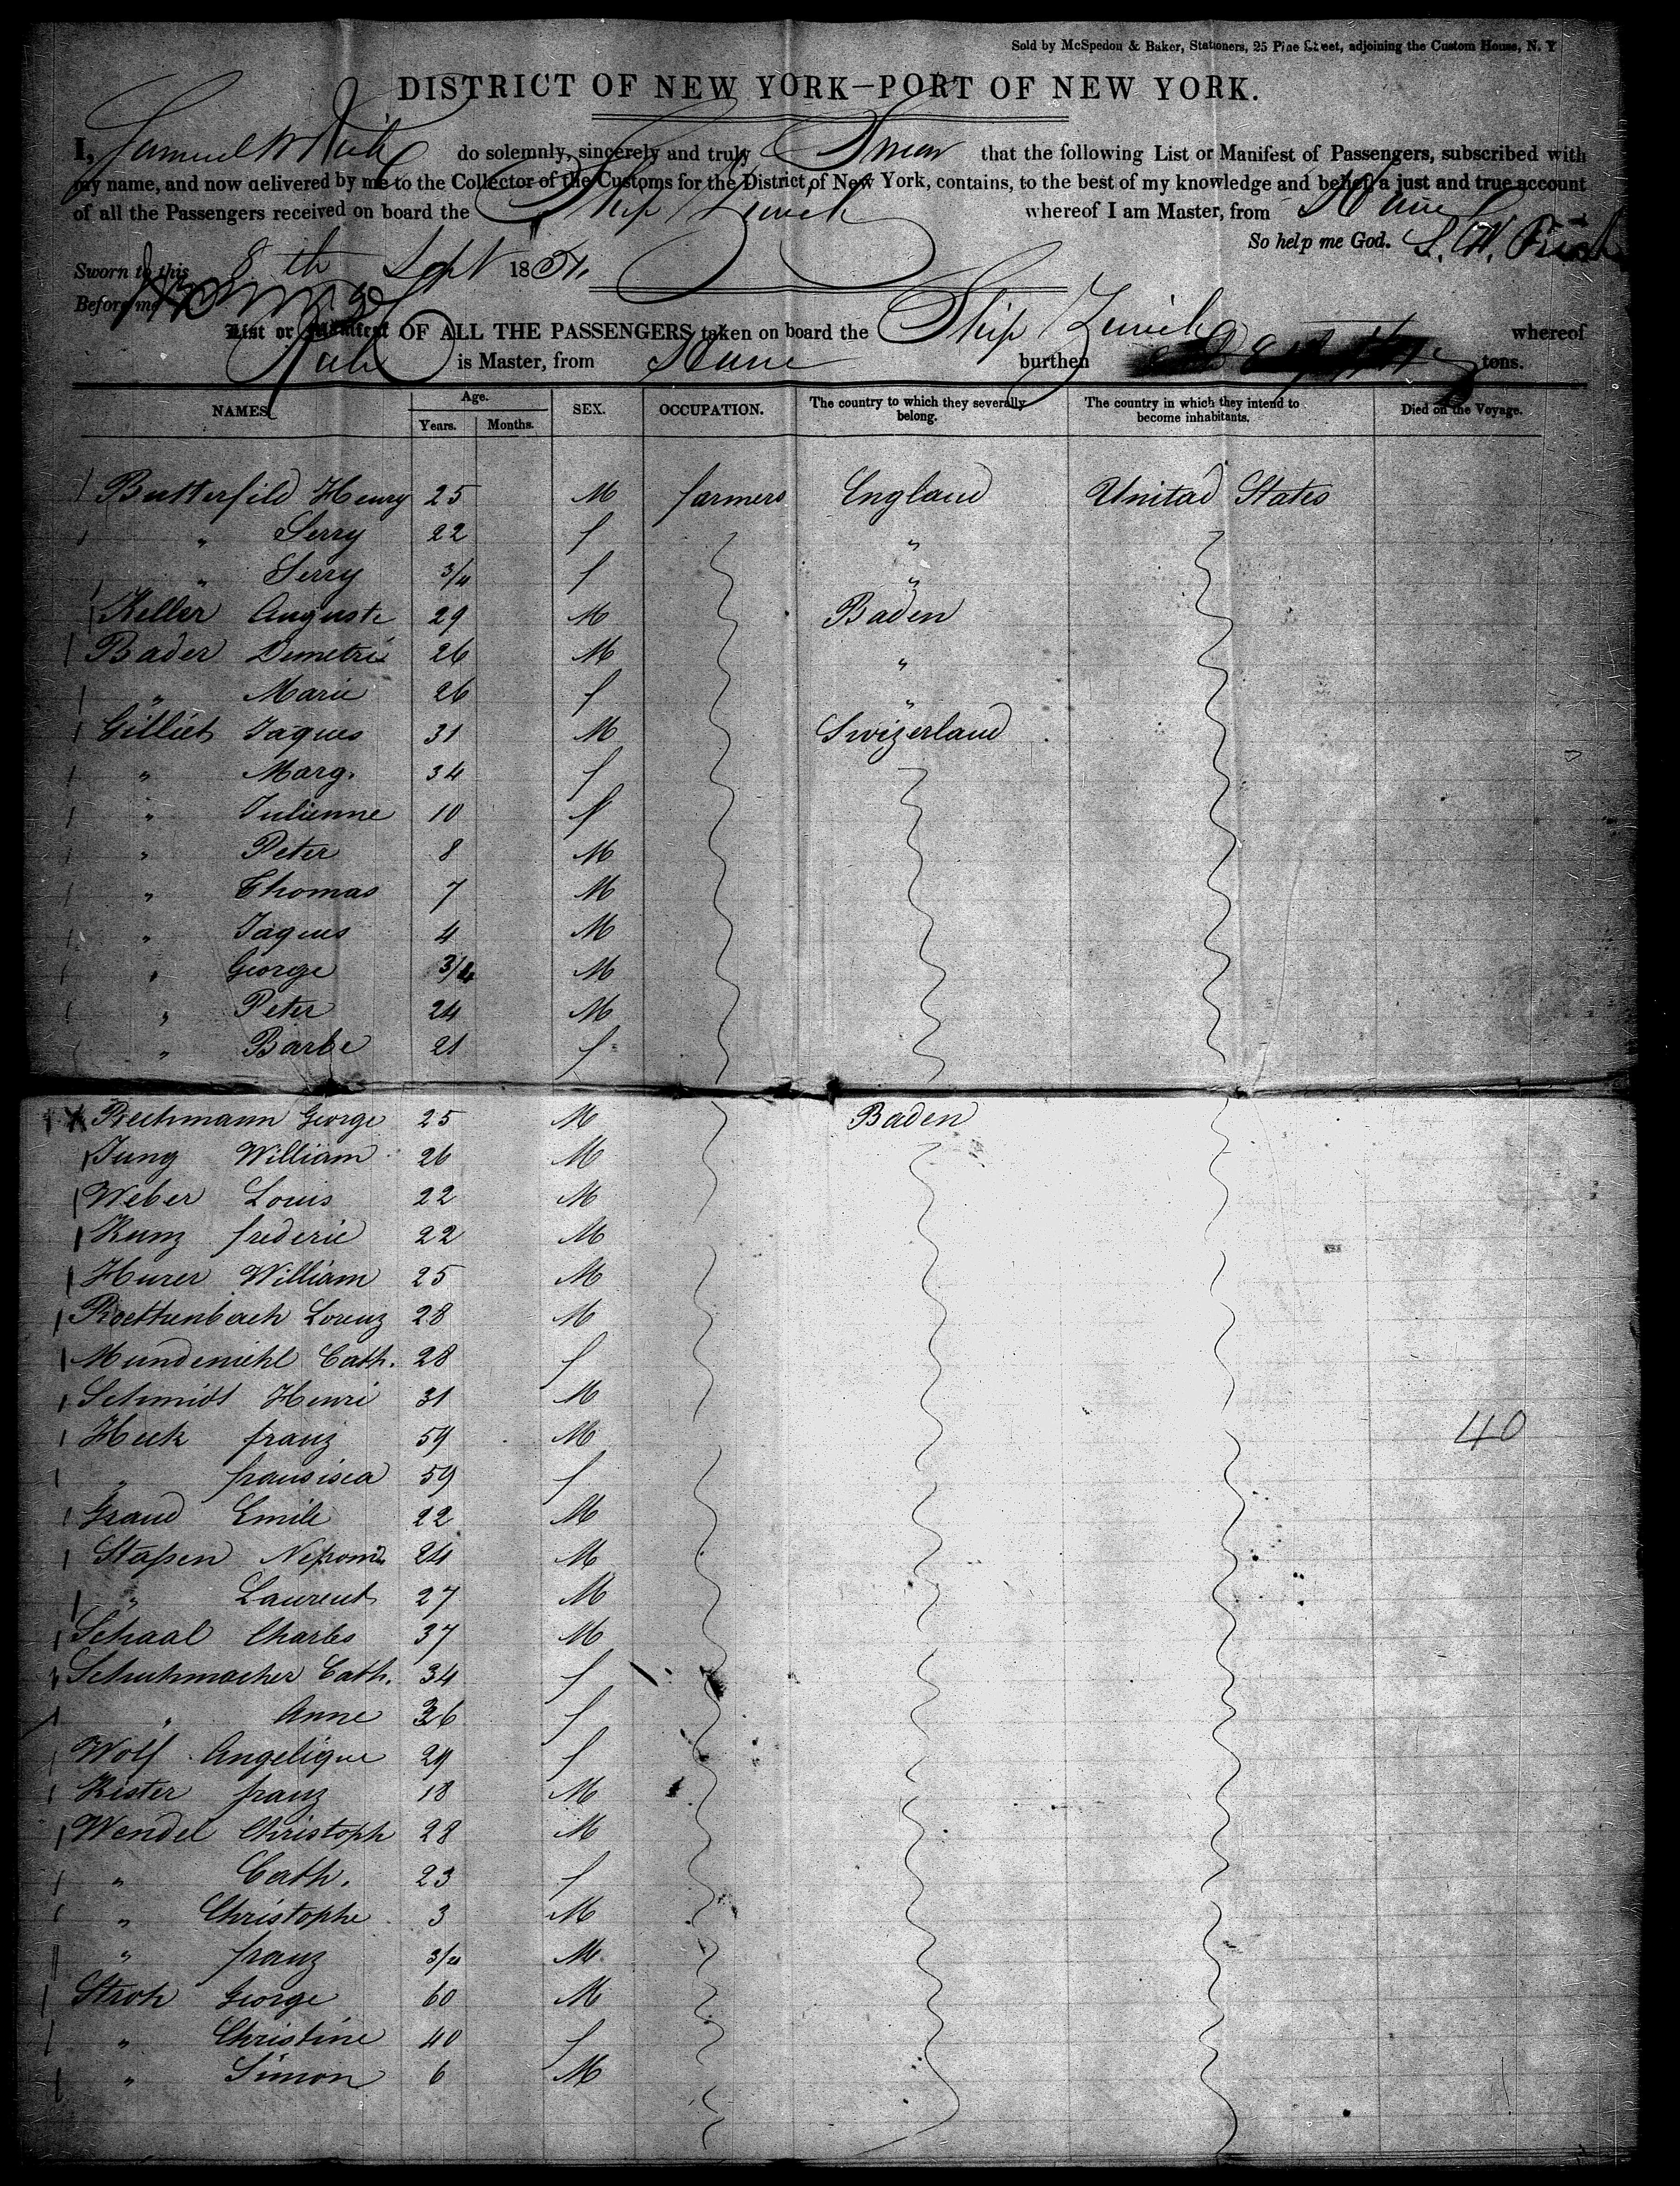 Sold by McSpedon & Baker, Stationers, 25 Pine Street, adjoining the Custom House, N. Y
DISTRICT OF NEW YORK—PORT OF NEW YORK.
I, Samuel W Rich do solemnly, sincerely and truly Swear that the following List or Manifest of Passengers, subscribed with
my name, and now delivered by me to the Collector of the Customs for the District of New York, contains, to the best of my knowledge and belief, a just and true account
of all the Passengers received on board the Ship Zurich whereof I am Master, from Havre
So help me God.
Sworn to this 8th Sept 1854
Before me
List or Manifest OF ALL THE PASSENGERS taken on board the Ship Zurich whereof
Rich is Master, from Havre burthen tons.
NAMES. Age. Years. Months. SEX. OCCUPATION. The country to which they severally belong. The country in which they intend to become inhabitants. Died on the Voyage.
Butterfild Henry 25 M farmers England United States
" Serry 22 f "
" Serry 3/4 f "
Keller Auguste 29 M Baden
Bader Demetri 26 M "
" Marie 26 f "
Gilliet Jaques 31 M Swizerland
" Marg. 34 f
" Julienne 10 f
" Peter 8 M
" Thomas 7 M
" Jaques 4 M
" George 3/4 M
" Peter 24 M
" Barbe 21 f
X Rechmann George 25 M Baden
Jung William 26 M
Weber Louis 22 M
Kunz frederic 22 M
Hurer William 25 M
Roethenbach Lorenz 28 M
Mundemehl Cath. 28 f
Schmidt Henri 31 M
Heck franz 59 M 40
" fransisca 59 f
Grand Emile 22 M
Stapen Nepom. 24 M
" Laurent 27 M
Schaal Charles 37 M
Schuhmacher Cath. 34 f
" Anne 36 f
Wolf Angelique 29 f
Kister franz 18 M
Wendel Christoph 28 M
" Cath. 23 f
" Christophe 3 M
" franz 3/4 M
Stroh George 60 M
" Christine 40 f
" Simon 6 M